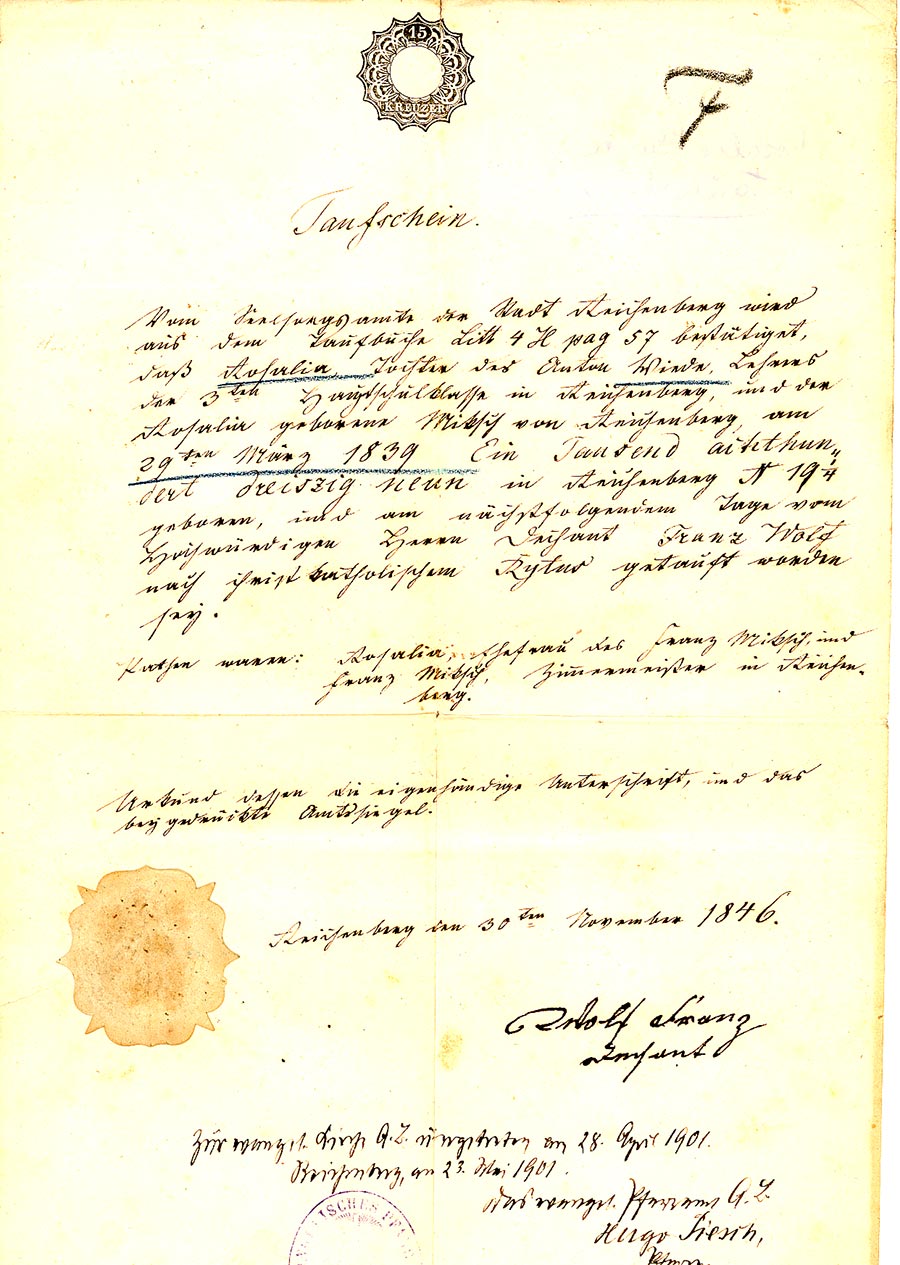 15
KREUZER
F
Taufschein.
Vom Seelsorgsamte der Stadt Reichenberg wird
aus dem Taufbuche Litt 4 H pag 57 bestätiget,
daß Rosalia, Tochter des Anton Wiede, Lehrers
der 3ten Hauptschulklasse in Reichenberg, und der
Rosalia geborene Miksch von Reichenberg, am
29ten März 1839 Ein Tausend achthun„
dert dreiszig neun in Reichenberg N 19
geboren, und am nächstfolgendem Tage vom
Hochwürdigen Herrn Dechant Franz Wolf
nach christkatholischem Rytus getauft worden
sey.
Pathen waren: Rosalia, Ehefrau des Franz Miksch, und
Franz Miksch, Zimermeister in Reichen-
berg.
Urkund dessen die eigenhändige Unterschrift, und das
beygedrückte Amtssiegel.
Reichenberg den 30ten November 1846.
Wolf Franz
Dechant
Zur evangel. Kirche A.B. übergetreten am 28. April 1901.
Reichenberg, am 23. Mai 1901.
Das evangel. Pfarramt A.B.
Hugo
Pfarrer